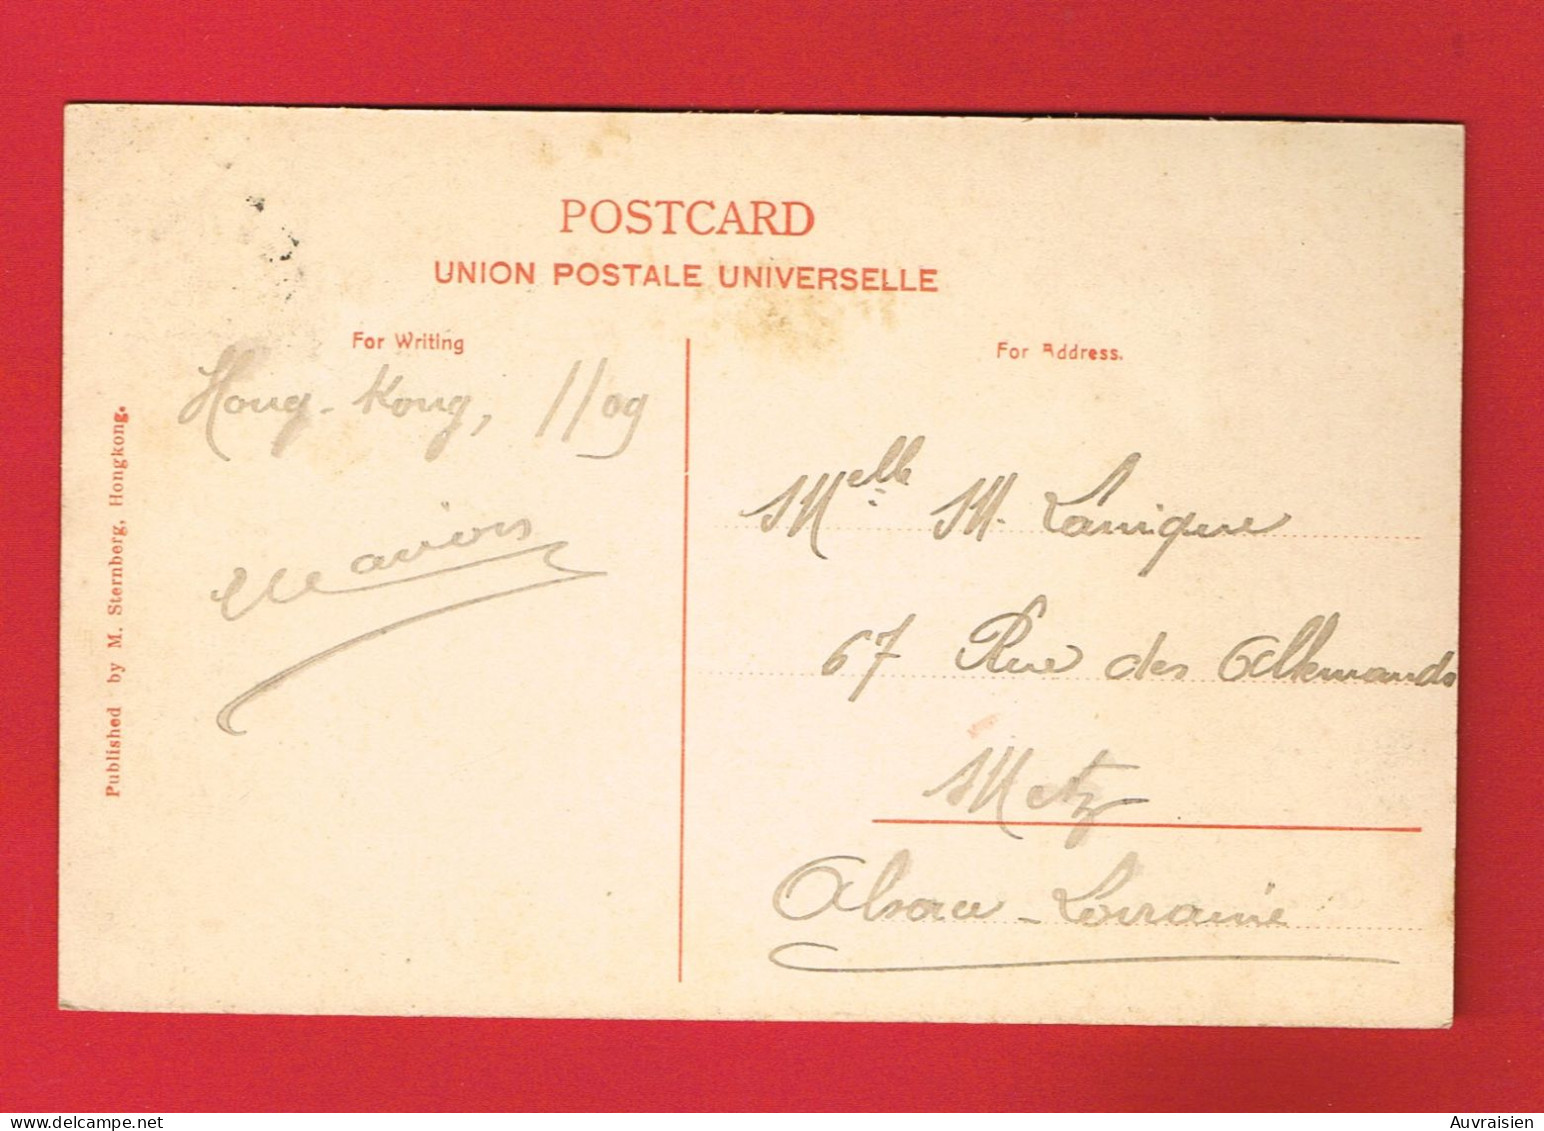 POSTCARD
UNION POSTALE UNIVERSELLE
For Writing
For Address.
Hong-Kong, 11/09
Published by M. Sternberg, Hongkong.
Melle M. Lanique
67 Rue des Allemands
Metz
Alsace-Lorraine
www.delcampe.net
Auvraisien